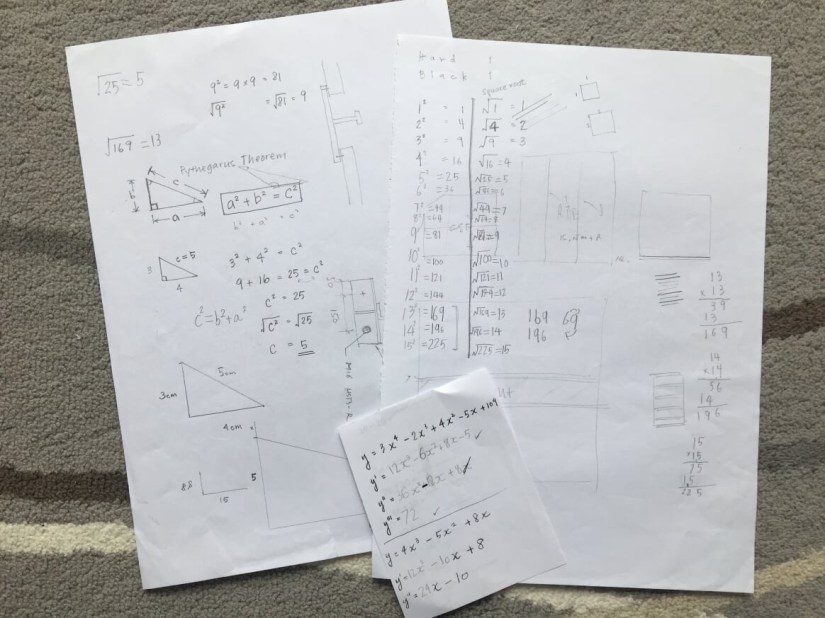 √25 = 5
9² = 9 × 9 = 81
√9² = √81 = 9
√169 = 13
Pythegarus Theorem
b
c
a
a² + b² = c²
b² = a² = c²
3
c=5
4
3² + 4² = c²
9 + 16 = 25 = c²
c² = 25
√c² = √25
c = 5
c² = b² + a²
3cm
5cm
4cm
15
5
Hand 1
Black 1
square root
1² = 1 √1 = 1
2² = 4 √4 = 2
3² = 9 √9 = 3
4² = 16 √16 = 4
5² = 25 √25 = 5
6² = 36 √36 = 6
7² = 49 √49 = 7
8² = 64 √64 = 8
9² = 81 √81 = 9
10² = 100 √100 = 10
11² = 121 √121 = 11
12² = 144 √144 = 12
13² = 169 √169 = 13 169
14² = 196 √196 = 14 196
15² = 225 √225 = 15
13
× 13
39
13
169
14
×14
56
14
196
15
×15
75
15
225
y = 3x⁴ - 2x³ + 4x² - 5x + 109
y' = 12x³ - 6x² + 8x - 5 ✓
y'''' = 72 ✓
y = 4x³ - 5x² + 8x
y' = 12x² - 10x + 8
y'' = 24x - 10